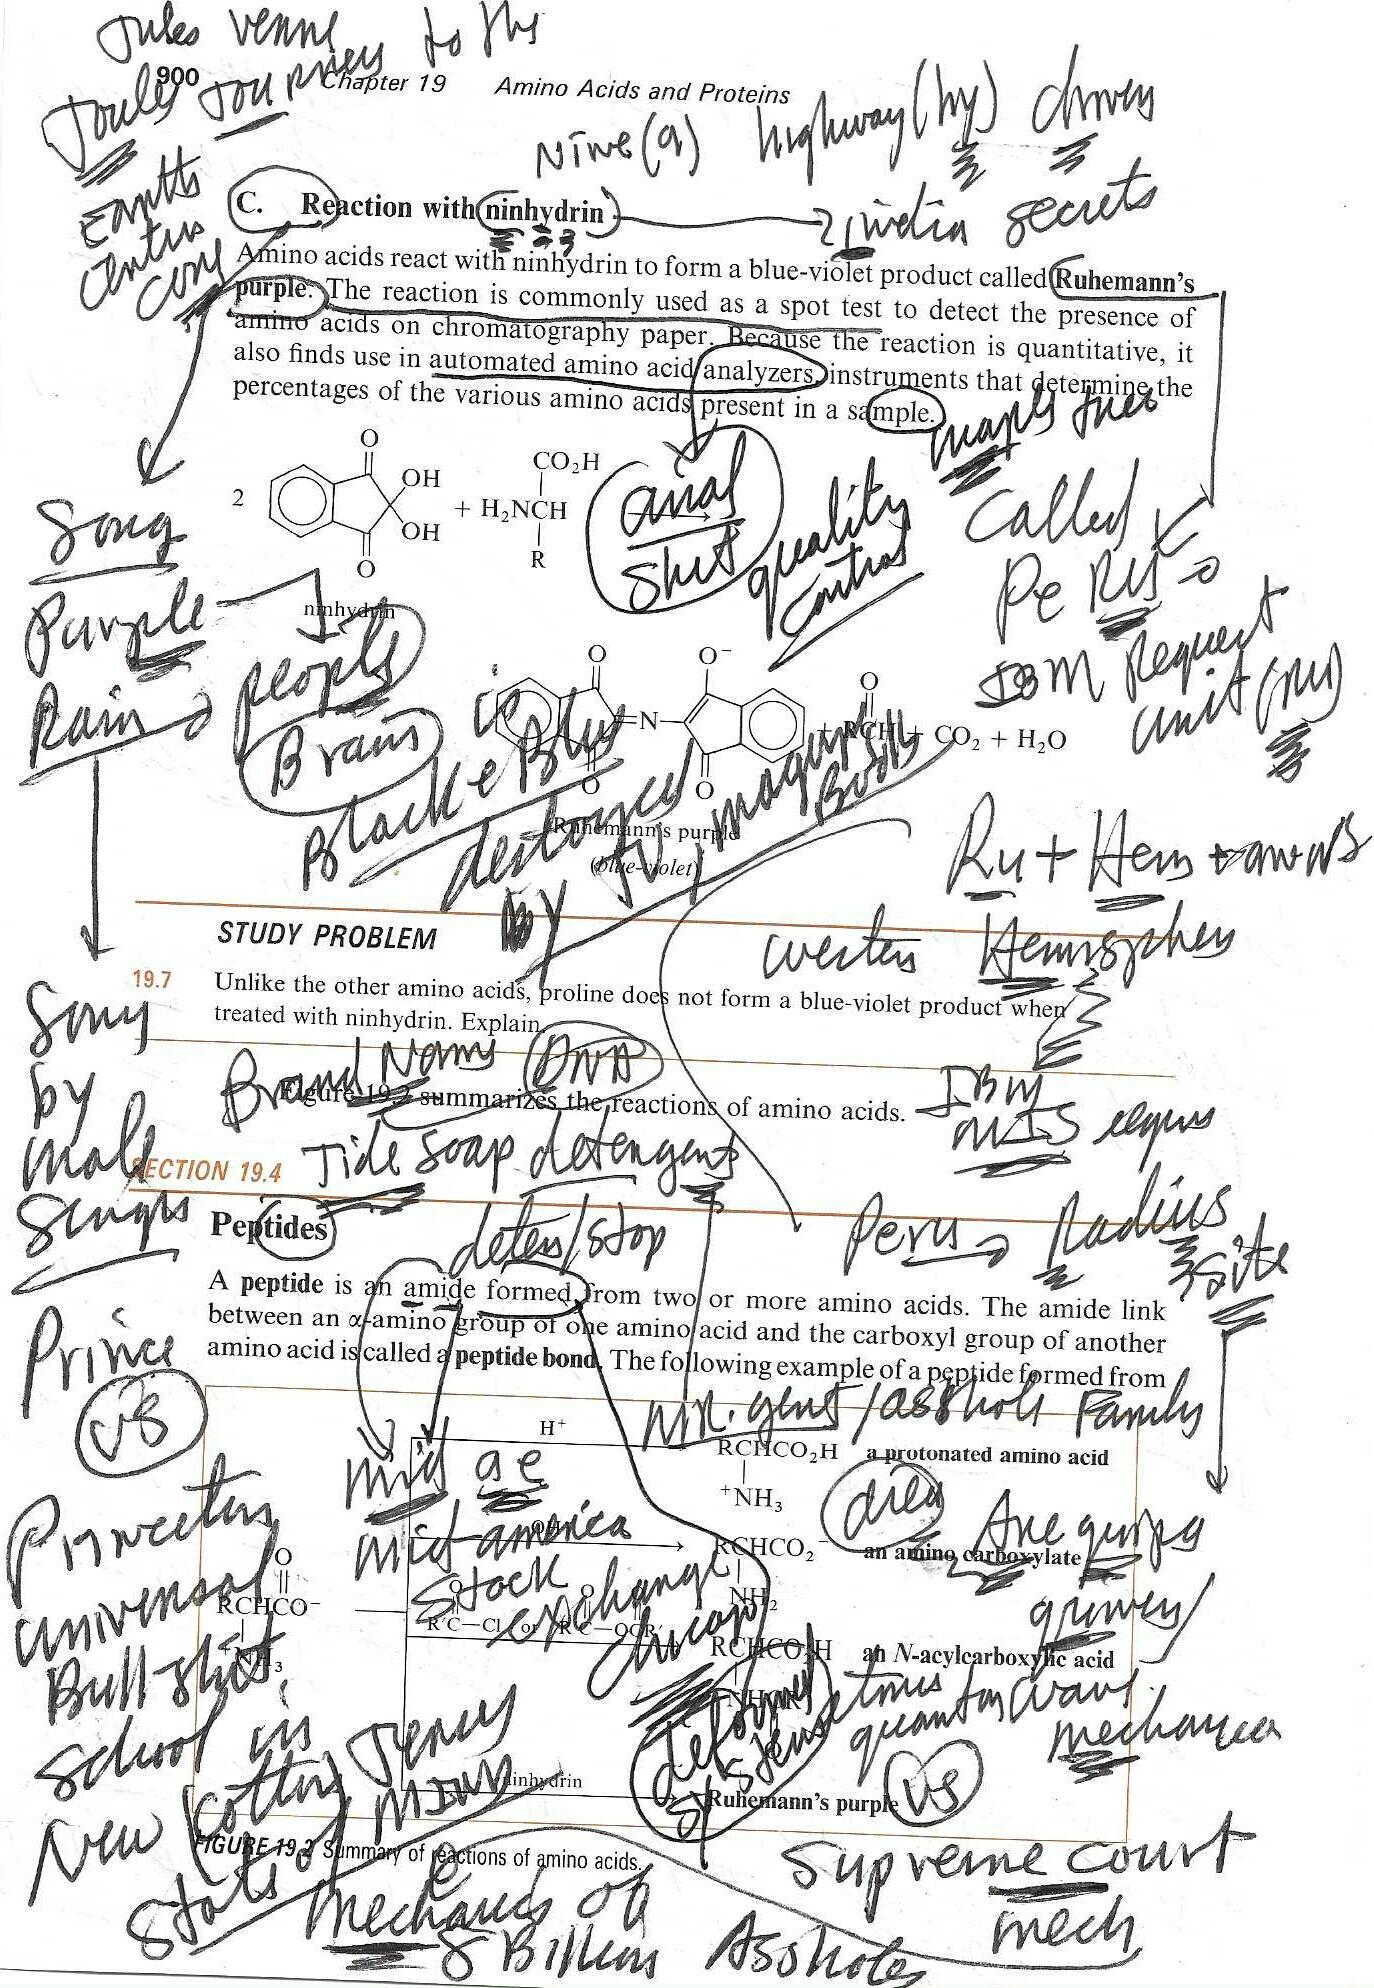 Jules Verne
Journey to the
900 Chapter 19 Amino Acids and Proteins
Joules
Earths
Nine (9) highway (hy) drivers
C. Reaction with ninhydrin
india secrets
Amino acids react with ninhydrin to form a blue-violet product called Ruhemann's
purple. The reaction is commonly used as a spot test to detect the presence of
amino acids on chromatography paper. Because the reaction is quantitative, it
also finds use in automated amino acid analyzers, instruments that determine the
percentages of the various amino acids present in a sample.
maple tree
O
CO₂H
OH
2
+ H₂NCH
OH
R
O
ninhydrin
anal
shit
quality
control
Called
Peru
IBM Request
unit (RU)
Song
Purple
Rain
people
Brains
is
Black & Blue
destroyed
by TV, magazines
Books
O
O⁻
O
N
+ RCH + CO₂ + H₂O
O
O
Ruhemann's purple
(blue-violet)
Ru + Hem
western Hemisphere
STUDY PROBLEM
19.7 Unlike the other amino acids, proline does not form a blue-violet product when
treated with ninhydrin. Explain.
Song
by
male
Singer
Prince
vs
Brand Names DNA
Figure 19.2 summarizes the reactions of amino acids.
IBM
MIS
Tide Soap detergent
SECTION 19.4
Peptides
deter/stop
Peru
Radius
site
A peptide is an amide formed from two or more amino acids. The amide link
between an α-amino group of one amino acid and the carboxyl group of another
amino acid is called a peptide bond. The following example of a peptide formed from
Mr. gent/asshole Family
H⁺
RCHCO₂H a protonated amino acid
⁺NH₃
mid ae
mid-america
stock
exchange
chicago
died
Arequipa
RCHCO₂⁻ an amino carboxylate
NH₂
O
RCHCO⁻
NH₃
R'C—Cl or R'C—OCR'
RCHCO₂H an N-acylcarboxylic acid
quantum wave
mechanics
Princeton
universal
Bullshit
school in
New Jersey
ninhydrin
Ruhemann's purple
vs
FIGURE 19.2 Summary of reactions of amino acids.
State of
mechanics of
8 Billion Assholes
Supreme court
mech